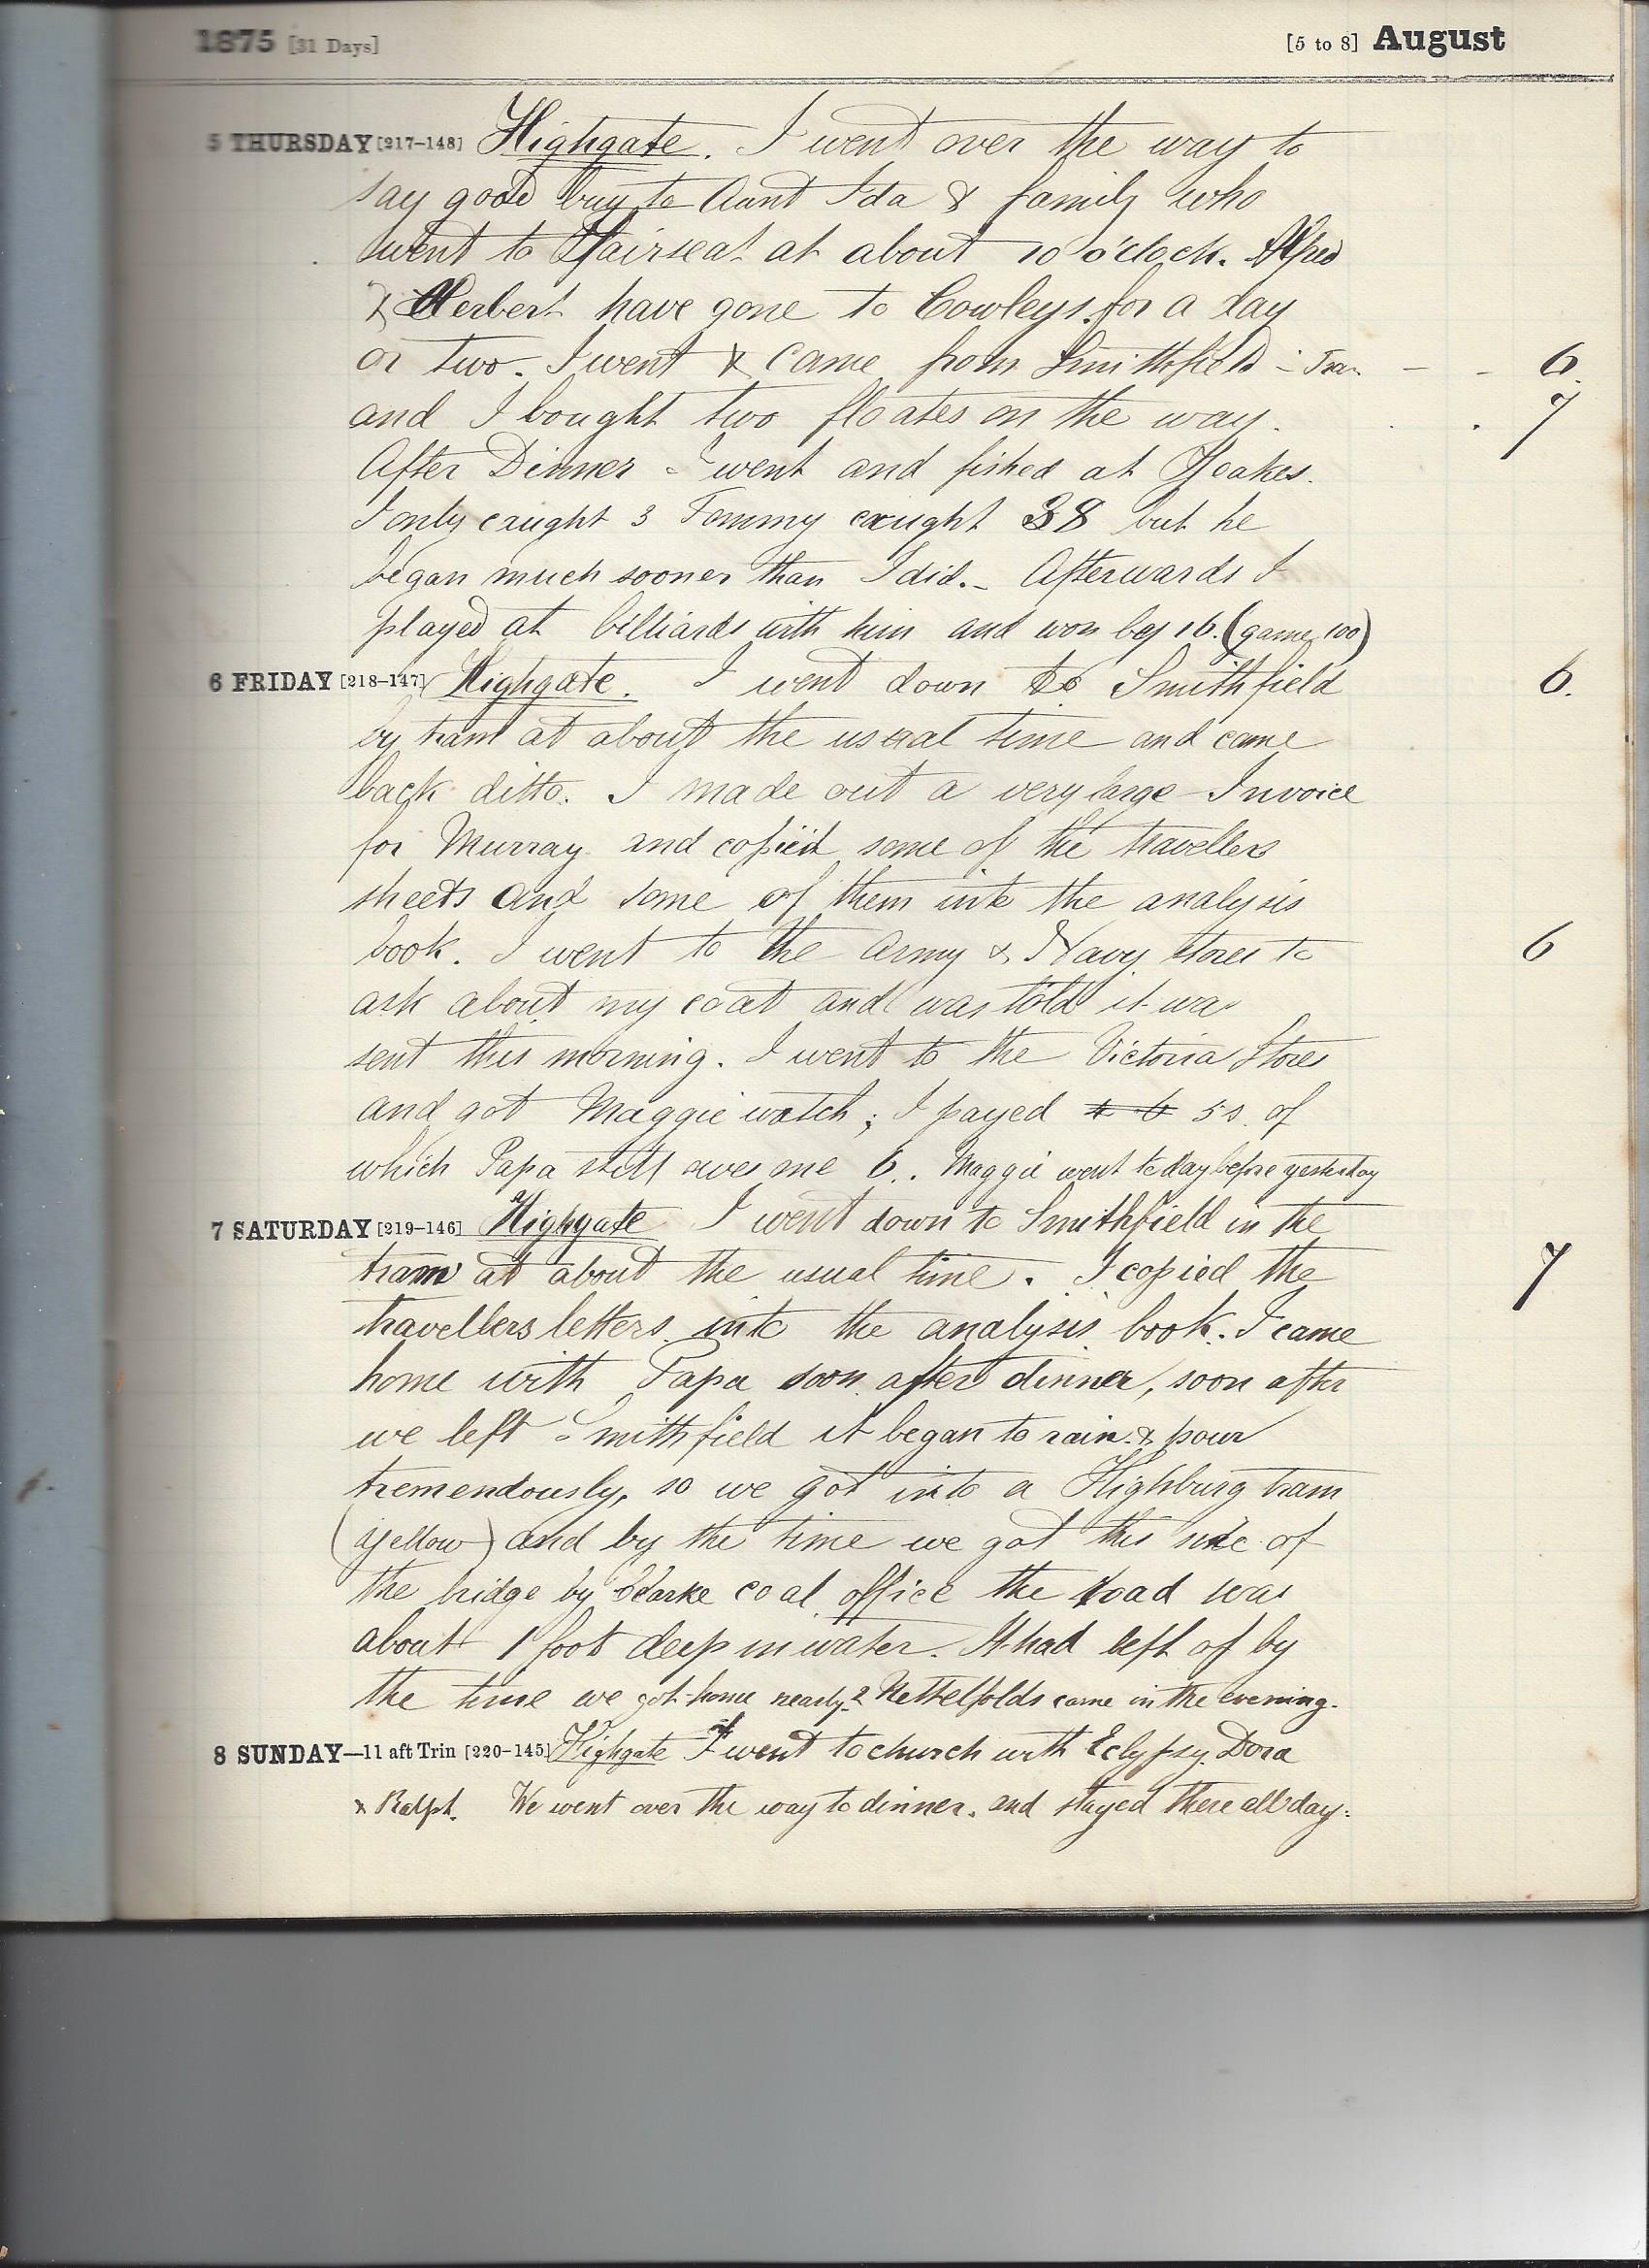 1875 [31 Days] [5 to 8] August
5 THURSDAY [217-148] Highgate. I went over the way to
say good buy to Aunt Ida & family who
went to Fairseat at about 10 o'clock. Alfred
& Herbert have gone to Cowleys for a day
or two. I went & came from Smithfield - Tram - - 6.
and I bought two floates on the way. . . 7
After Dinner I went and fished at Yeakes.
I only caught 3 Tommy caught 38 but he
began much sooner than I did. - Afterwards I
played at billiards with him and won by 16. (game 100)
6 FRIDAY [218-147] Highgate. I went down to Smithfield 6.
by tram at about the usual time and came
back ditto. I made out a very large Invoice
for Murray and copied some of the travellers
sheets and some of them into the analysis
book. I went to the Army & Navy Stores to 6
ask about my coat and was told it was
sent this morning. I went to the Victoria Stores
and got Maggie watch; I payed 5s. of
which Papa still owes me 6.. Maggie went to day before yesterday
7 SATURDAY [219-146] Highgate I went down to Smithfield in the
tram at about the usual time. I copied the 7
travellers letters into the analysis book. I came
home with Papa soon after dinner, soon after
we left Smithfield it began to rain & pour
tremendously, so we got into a Highburg tram
(yellow) and by the time we got this side of
the bridge by Clarke coal office the road was
about 1 foot deep in water. It had left of by
the time we got home nearly. 2 Nettelfolds came in the evening.
8 SUNDAY—11 aft Trin [220-145] Highgate I went to church with Eclypsy Dora
& Ralph. We went over the way to dinner. and stayed there all day.